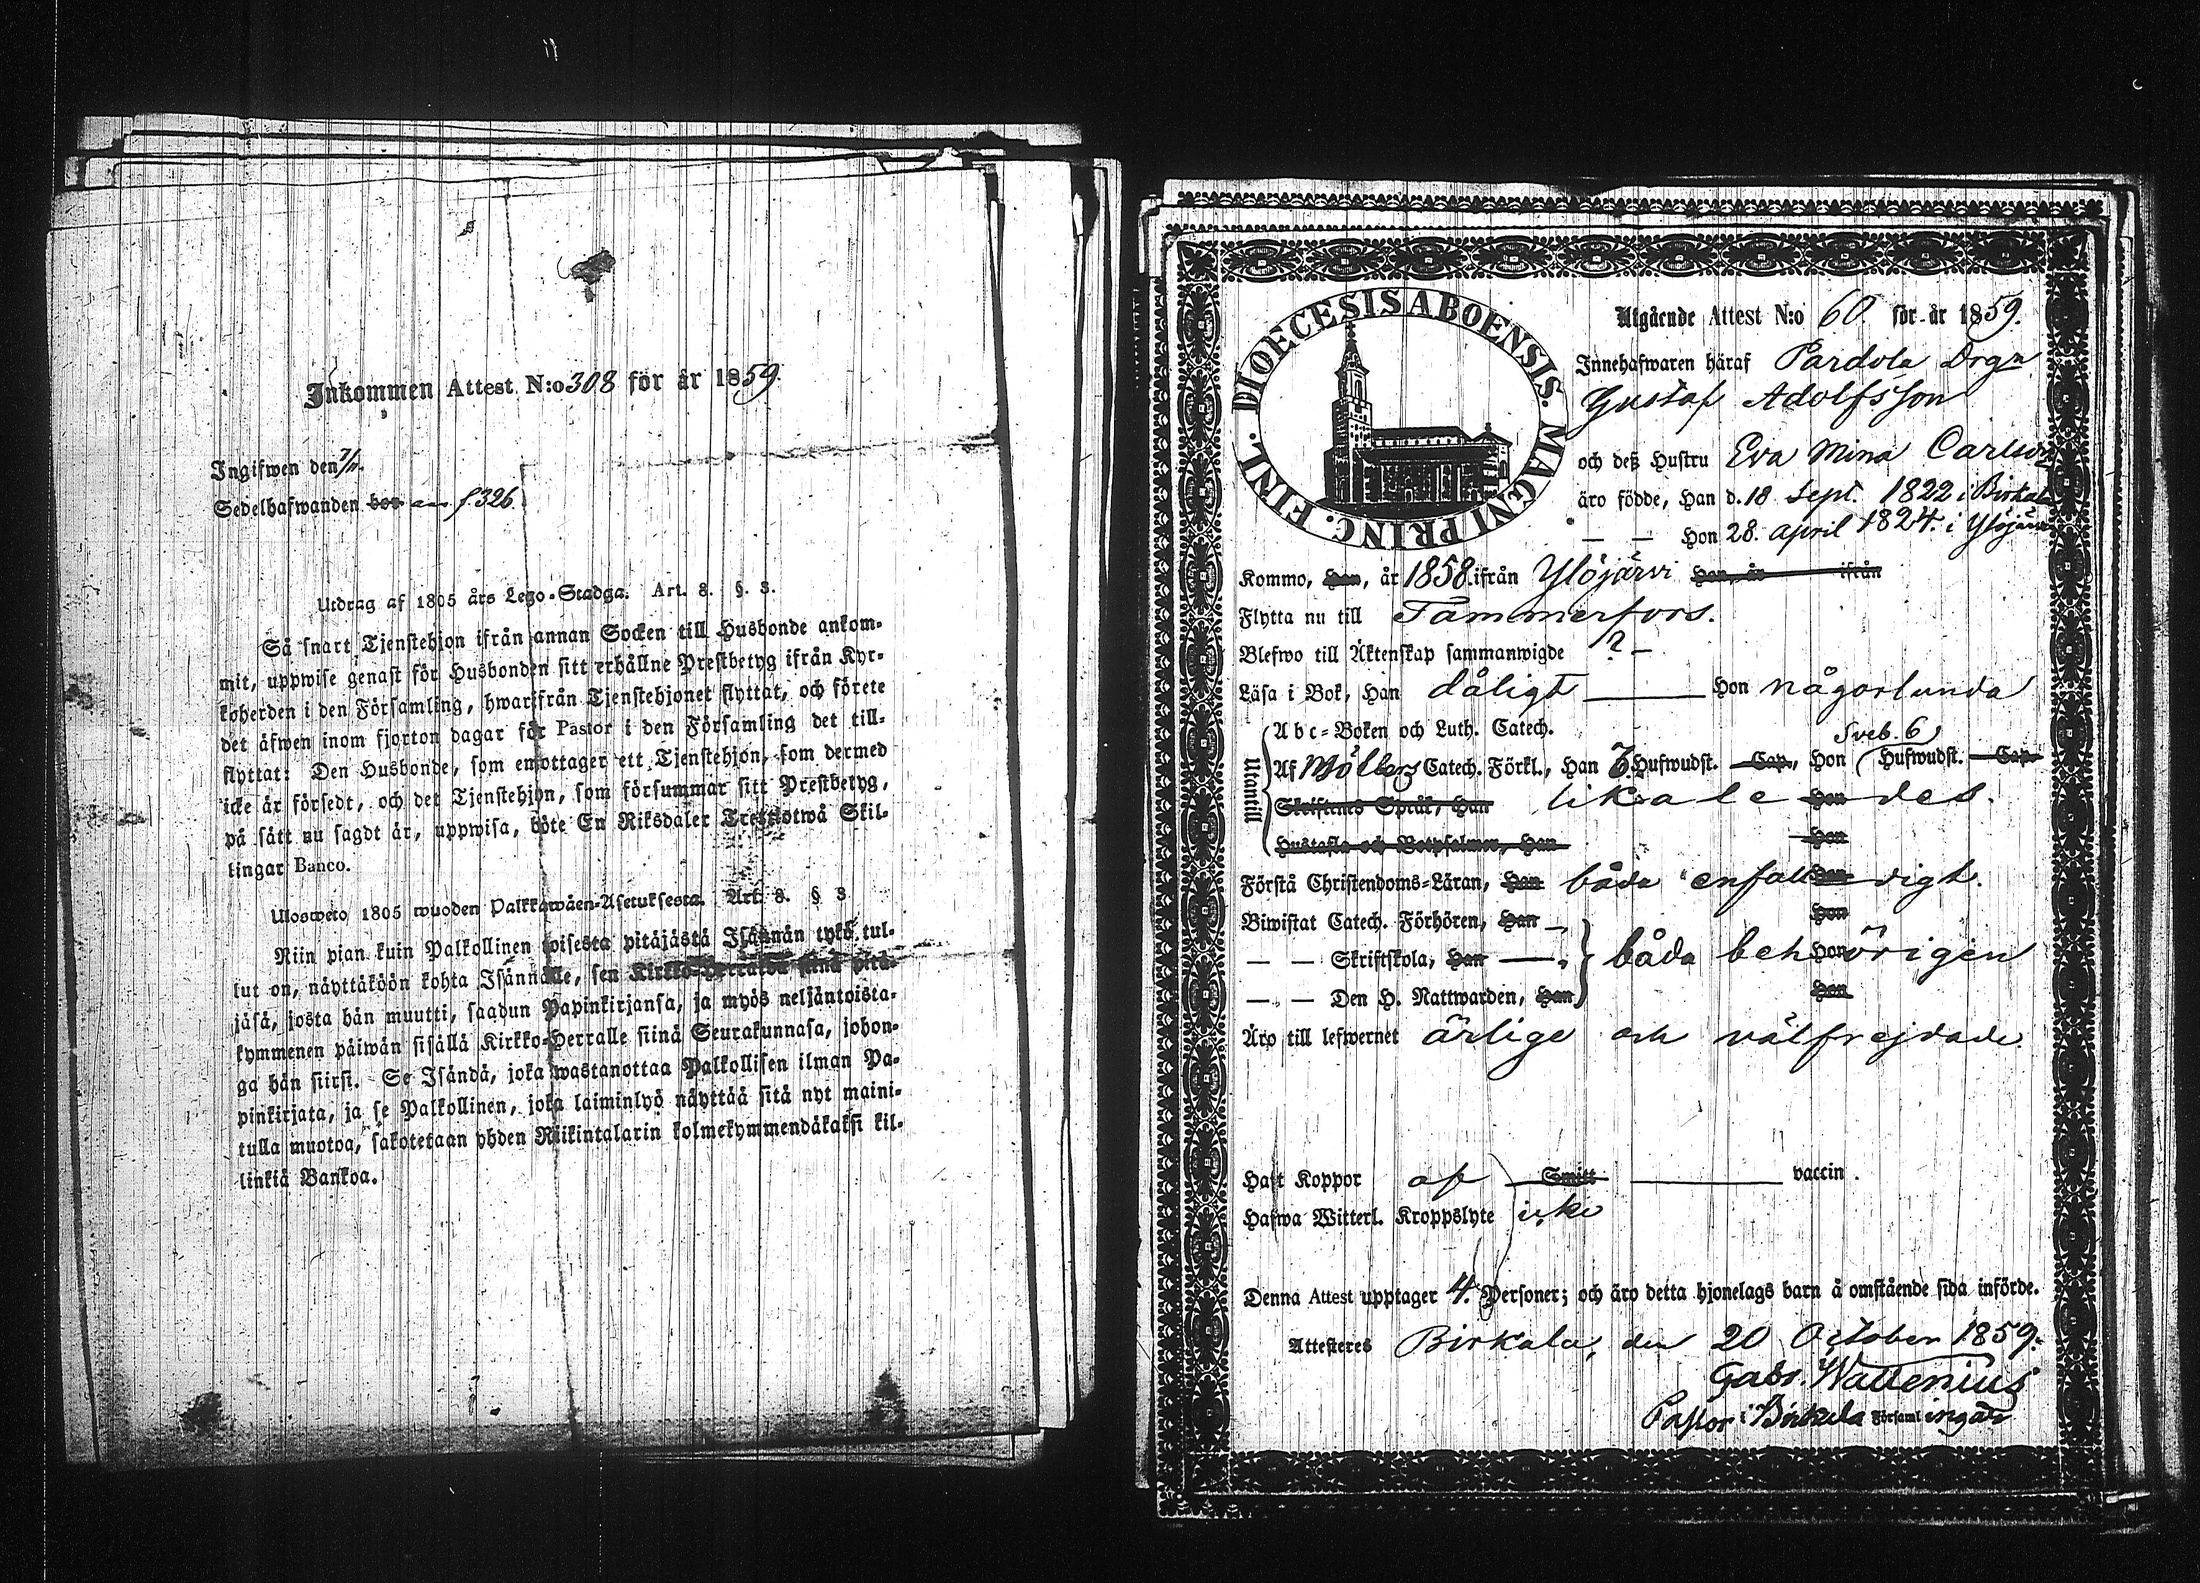 Inkommen Attest N:o 308 för år 1859.
Ingifwen den 7/11.
Sedelhafwanden bor f 326
Utdrag af 1805 års Lego-Stadga. Art. 8. §. 3.
Så snart Tjenstehjon ifrån annan Socken till Husbonde ankom-
mit, uppwise genast för Husbonden sitt erhållne Prestbetyg ifrån Kyr-
koherden i den Församling, hwarifrån Tjenstehjonet flyttat, och förete
det äfwen inom fjorton dagar för Pastor i den Församling det till-
flyttat: Den Husbonde, som emottager ett Tjenstehjon, som dermed
icke är försedt, och det Tjenstehjon, som försummar sitt Prestbetyg,
på sätt nu sagdt är, uppwisa, böte En Riksdaler Trettiotwå Skil-
lingar Banco.
Ulosweto 1805 wuoden Palkkawäen-Asetuksesta. Art. 8. § 3
Niin pian kuin Palkollinen toisesta pitäjästä Isännän tykö tul-
lut on, näyttäköön kohta Isännälle, sen Kirkko-Herralda siinä pitä-
jäsä, josta hän muutti, saadun Papinkirjansa, ja myös neljäntoista-
kymmenen päiwän sisällä Kirkko-Herralle siinä Seurakunnasa, johon-
ga hän siirsi. Se Isändä, joka wastanottaa Palkollisen ilman Pa-
pinkirjata, ja se Palkollinen, joka laiminlyö näyttää sitä nyt maini-
tulla muotoa, sakotetaan yhden Riikintalarin kolmekymmendäkaksi kil-
linkiä Bankoa.
DIOECESIS ABOENSIS. MAGNI PRINC. FINL.
Utgående Attest N:o 60 för år 1859.
Innehafwaren häraf Pardola Drgn
Gustaf Adolfsson
och deß Hustru Eva Mina Carlsdr
äro födde, Han d. 18 Sept. 1822 i Birkala
— — Hon 28. april 1824. i Ylöjärvi
Kommo, Han, år 1858 ifrån Ylöjärvi Hon, år ifrån
Flytta nu till Tammerfors.
Blefwo till Äktenskap sammanwigde ? —
Läsa i Bok, Han dåligt Hon någorlunda
Utantill
Abc-Boken och Luth. Catech.
Sveb. 6
Af Möllers Catech. Förkl., Han 7. Hufwudst. Cap., Hon Hufwudst. Cap.
Skriftenes Språk, Han likale Hon des.
Hustafla och Botpsalmer, Han Hon
Förstå Christendoms-Läran, Han båda enfalldigt. Hon
Biwistat Catech. Förhören, Han Hon
— — Skriftskola, Han båda behörigen Hon
— — Den H. Nattwarden, Han Hon
Äro till lefwernet ärlige och välfrejdade.
Haft Koppor af Smitt vaccin.
Hafwa Witterl. Kroppslyte icke
Denna Attest upptager 4. Personer; och äro detta hjonelags barn å omstående sida införde.
Attesteres Birkala, den 20 October 1859.
Gabr. Wallenius
Pastor i Birkala Församlingar